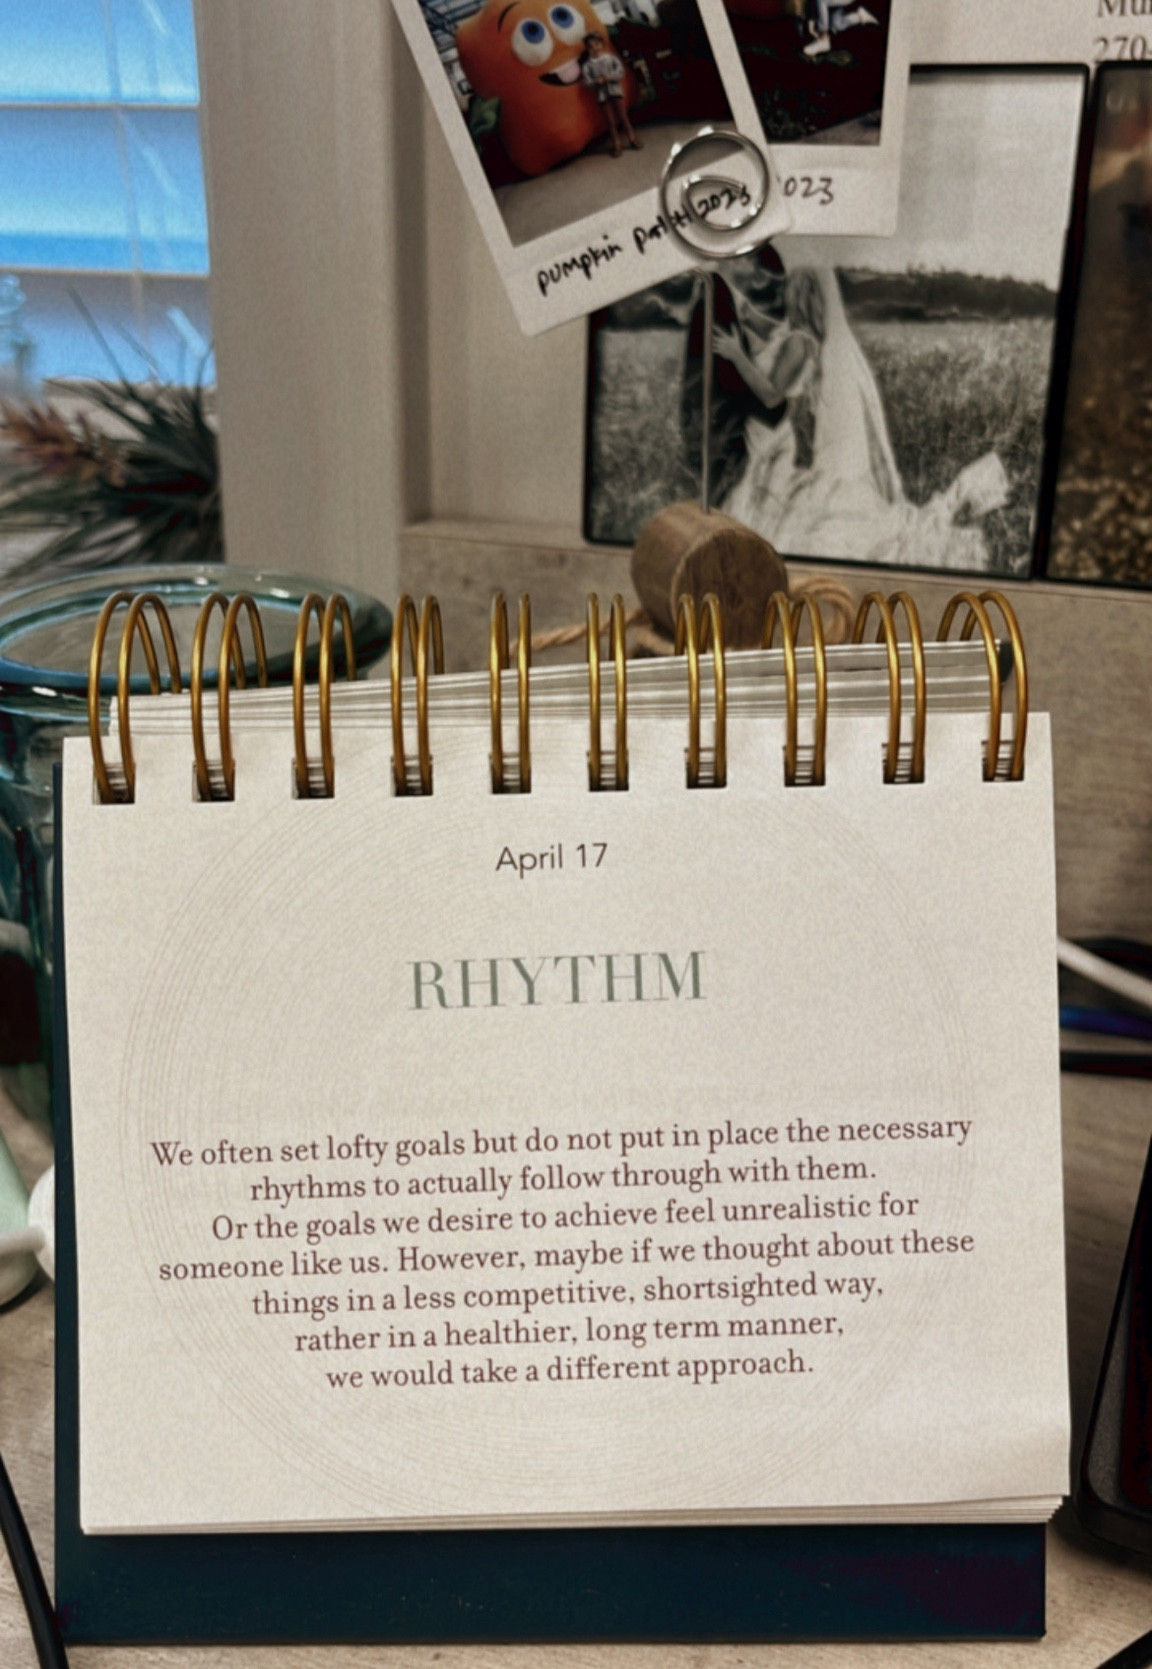 Mu
270-
pumpkin patch 2023
2023
April 17
RHYTHM
We often set lofty goals but do not put in place the necessary
rhythms to actually follow through with them.
Or the goals we desire to achieve feel unrealistic for
someone like us. However, maybe if we thought about these
things in a less competitive, shortsighted way,
rather in a healthier, long term manner,
we would take a different approach.